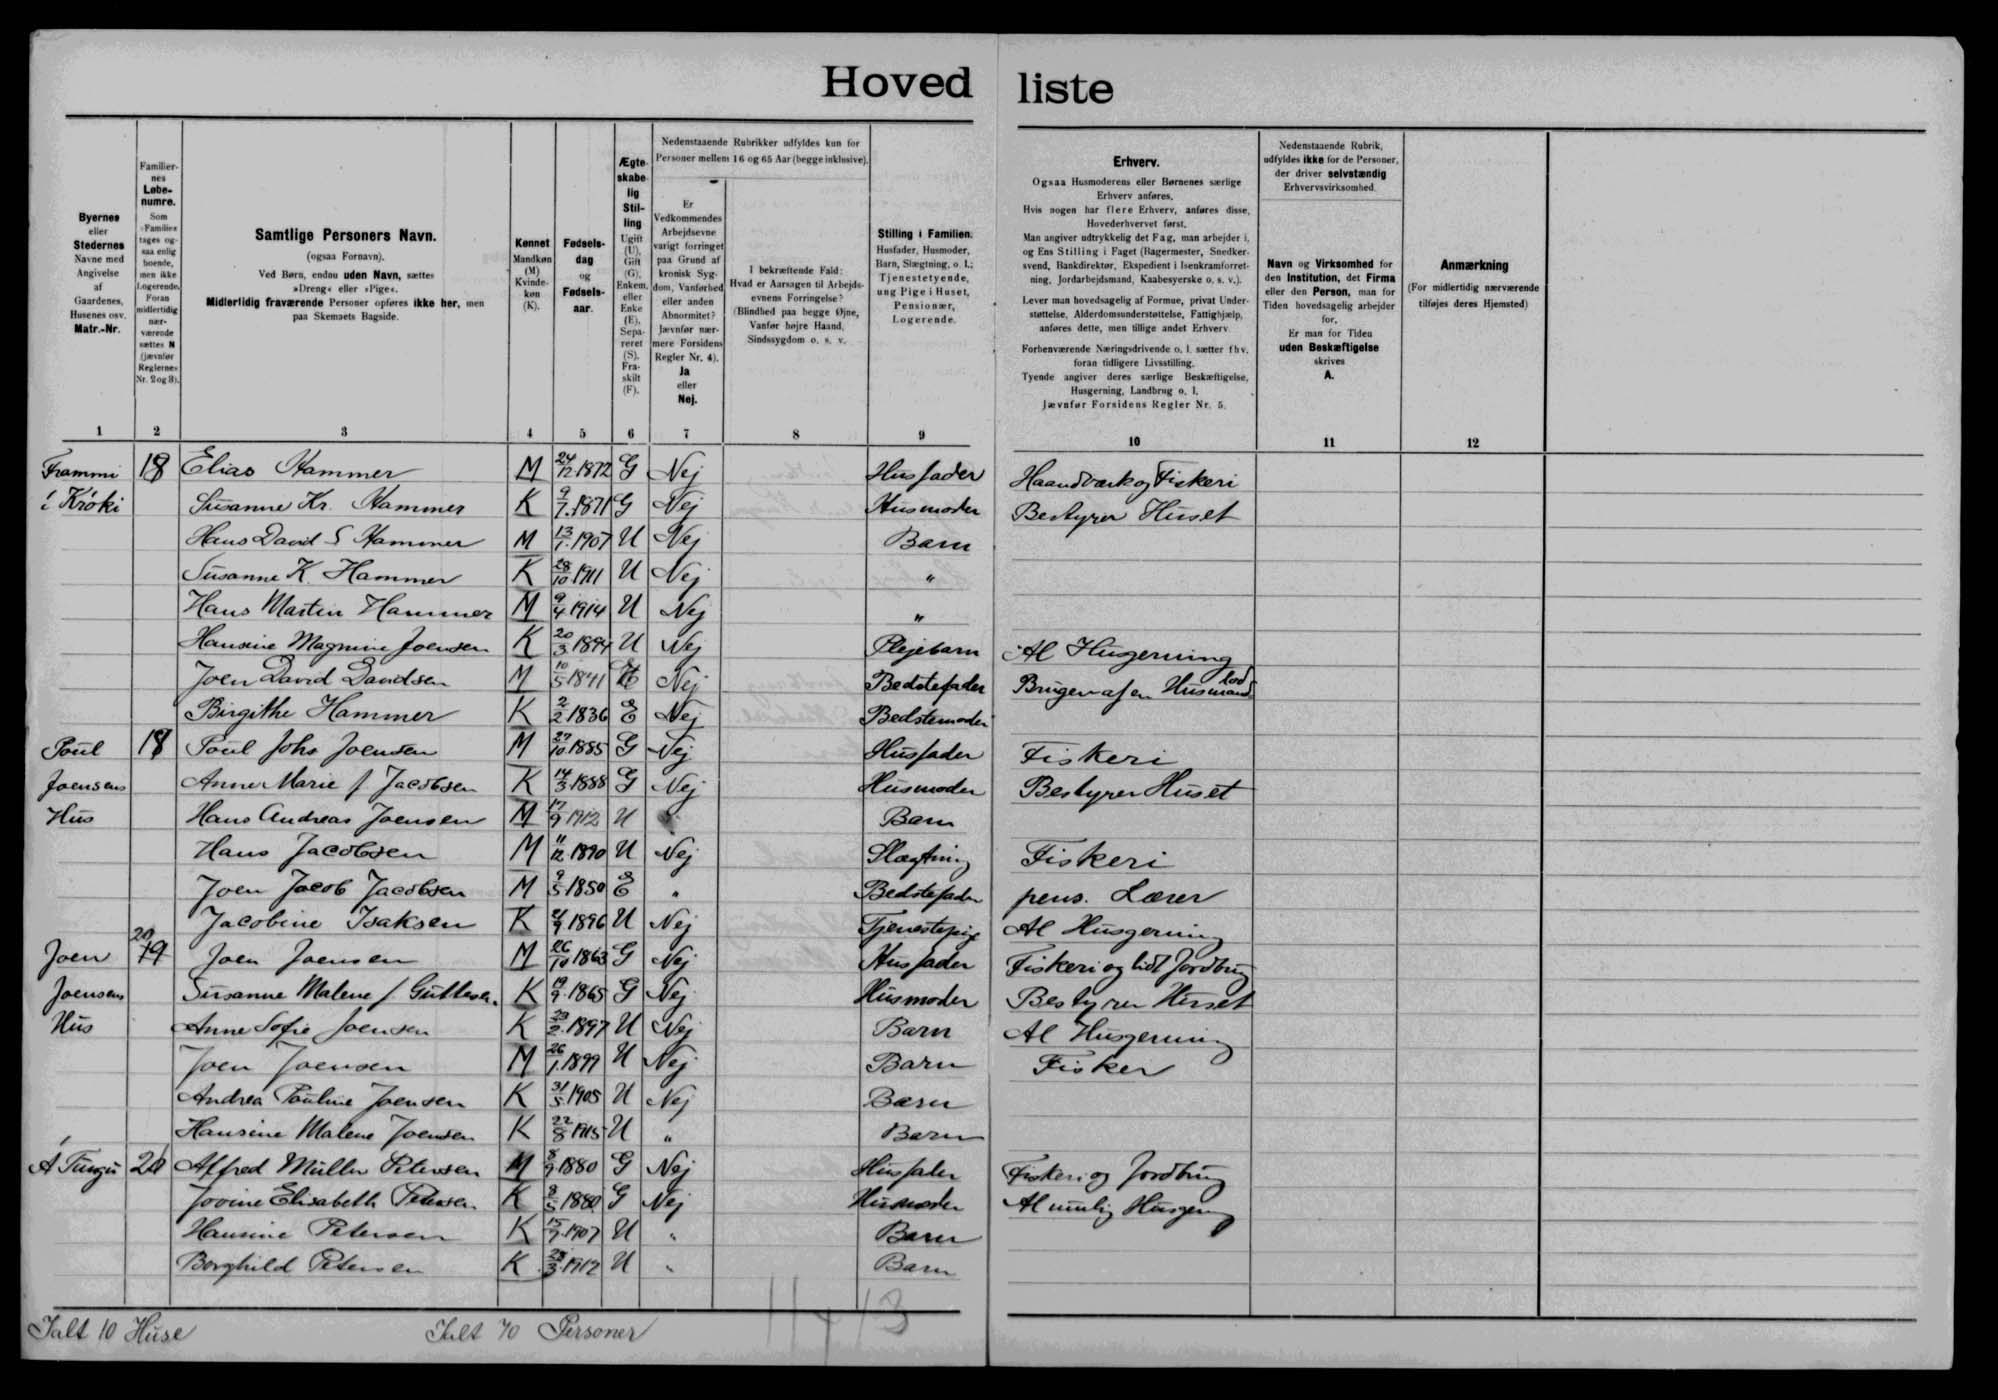 Hoved liste
Byernes eller Stedernes Navne med Angivelse af Gaardenes, Husenes osv. Matr.-Nr.
Familiernes Løbenumre. Som »Familie« tages ogsaa enlig boende, men ikke Logerende. Foran midlertidig nærværende sættes N (jævnfør Reglernes Nr. 2 og 3).
Samtlige Personers Navn.
(ogsaa Fornavn).
Ved Børn, endnu uden Navn, sættes »Dreng« eller »Pige«.
Midlertidig fraværende Personer opføres ikke her, men paa Skemaets Bagside.
Kønnet Mandkøn (M) Kvindekøn (K).
Fødselsdag og Fødselsaar.
Ægteskabelig Stilling Ugift (U), Gift (G), Enkem. eller Enke (E), Separeret (S). Fraskilt (F).
Nedenstaaende Rubrikker udfyldes kun for Personer mellem 16 og 65 Aar (begge inklusive).
Er Vedkommendes Arbejdsevne varigt forringet paa Grund af kronisk Sygdom, Vanførhed eller anden Abnormitet? Jævnfør nærmere Forsidens Regler Nr. 4). Ja eller Nej.
I bekræftende Fald: Hvad er Aarsagen til Arbejdsevnens Forringelse? (Blindhed paa begge Øjne, Vanfør højre Haand, Sindssygdom o. s. v.
Stilling i Familien. Husfader, Husmoder, Barn, Slægtning, o. l.; Tjenestetyende, ung Pige i Huset, Pensionær, Logerende.
Erhverv.
Ogsaa Husmoderens eller Børnenes særlige Erhverv anføres.
Hvis nogen har flere Erhverv, anføres disse, Hovederhvervet først.
Man angiver udtrykkelig det Fag, man arbejder i, og Ens Stilling i Faget (Bagermester, Snedkersvend, Bankdirektør, Ekspedient i Isenkramforretning, Jordarbejdsmand, Kaabesyerske o. s. v.).
Lever man hovedsagelig af Formue, privat Understøttelse, Alderdomsunderstøttelse, Fattighjælp, anføres dette, men tillige andet Erhverv.
Forhenværende Næringsdrivende o. l. sætter fhv. foran tidligere Livsstilling.
Tyende angiver deres særlige Beskæftigelse, Husgerning, Landbrug o. l.
Jævnfør Forsidens Regler Nr. 5.
Nedenstaaende Rubrik, udfyldes ikke for de Personer, der driver selvstændig Erhvervsvirksomhed.
Navn og Virksomhed for den Institution, det Firma eller den Person, man for Tiden hovedsagelig arbejder for.
Er man for Tiden uden Beskæftigelse skrives A.
Anmærkning
(For midlertidig nærværende tilføjes deres Hjemsted)
1 2 3 4 5 6 7 8 9 10 11 12
Frammi 18 Elias Hammer M 24/12 1872 G Nej Husfader Haandværk og Fiskeri
í Króki Susanne Kr. Hammer K 9/7 1871 G Nej Husmoder Bestyrer Huset
Hans David S Hammer M 13/1 1907 U Nej Barn
Susanne K. Hammer K 28/10 1911 U Nej "
Hans Martin Hammer M 9/4 1914 U Nej "
Hansine Magnine Joensen K 20/3 1894 U Nej Plejebarn Al Husgerning
Joen David Davidsen M 10/5 1841 E Nej Bedstefader Brugen af en Husmandslod
Birgithe Hammer K 2/2 1836 E Nej Bedstemoder
Poul 18 Poul Johs Joensen M 27/10 1885 G Nej Husfader Fiskeri
Joensens Anne Marie f Jacobsen K 14/3 1888 G Nej Husmoder Bestyrer Huset
Hus Hans Andreas Joensen M 17/9 1912 U Barn
Hans Jacobsen M 11/12 1890 U Nej Slægtning Fiskeri
Joen Jacob Jacobsen M 9/5 1850 E " Bedstefader pens. Lærer
Jacobine Isaksen K 1896 U Nej Tjenestepige Al Husgerning
Joen 20 19 Joen Joensen M 26/10 1863 G Nej Husfader Fiskeri og lidt Jordbrug
Joensens Susanne Malene f. Guttesen K 19/9 1865 G Nej Husmoder Bestyrer Huset
Hus Anne Sofie Joensen K 23/2 1897 U Nej Barn Al Husgerning
Joen Joensen M 26/1 1899 U Nej Barn Fisker
Andrea Pauline Joensen K 31/5 1905 U Nej Barn
Hansine Malene Joensen K 22/8 1915 U " Barn
Á Tungu Alfred Müller Petersen M 8/9 1880 G Nej Husfader Fiskeri og Jordbrug
Jovine Elisabeth Petersen K 8/5 1880 G Nej Husmoder Almindlig Husgerning
Hansine Petersen K 1907 U " Barn
Borghild Petersen K 1912 U " Barn
Ialt 10 Huse Ialt 70 Personer